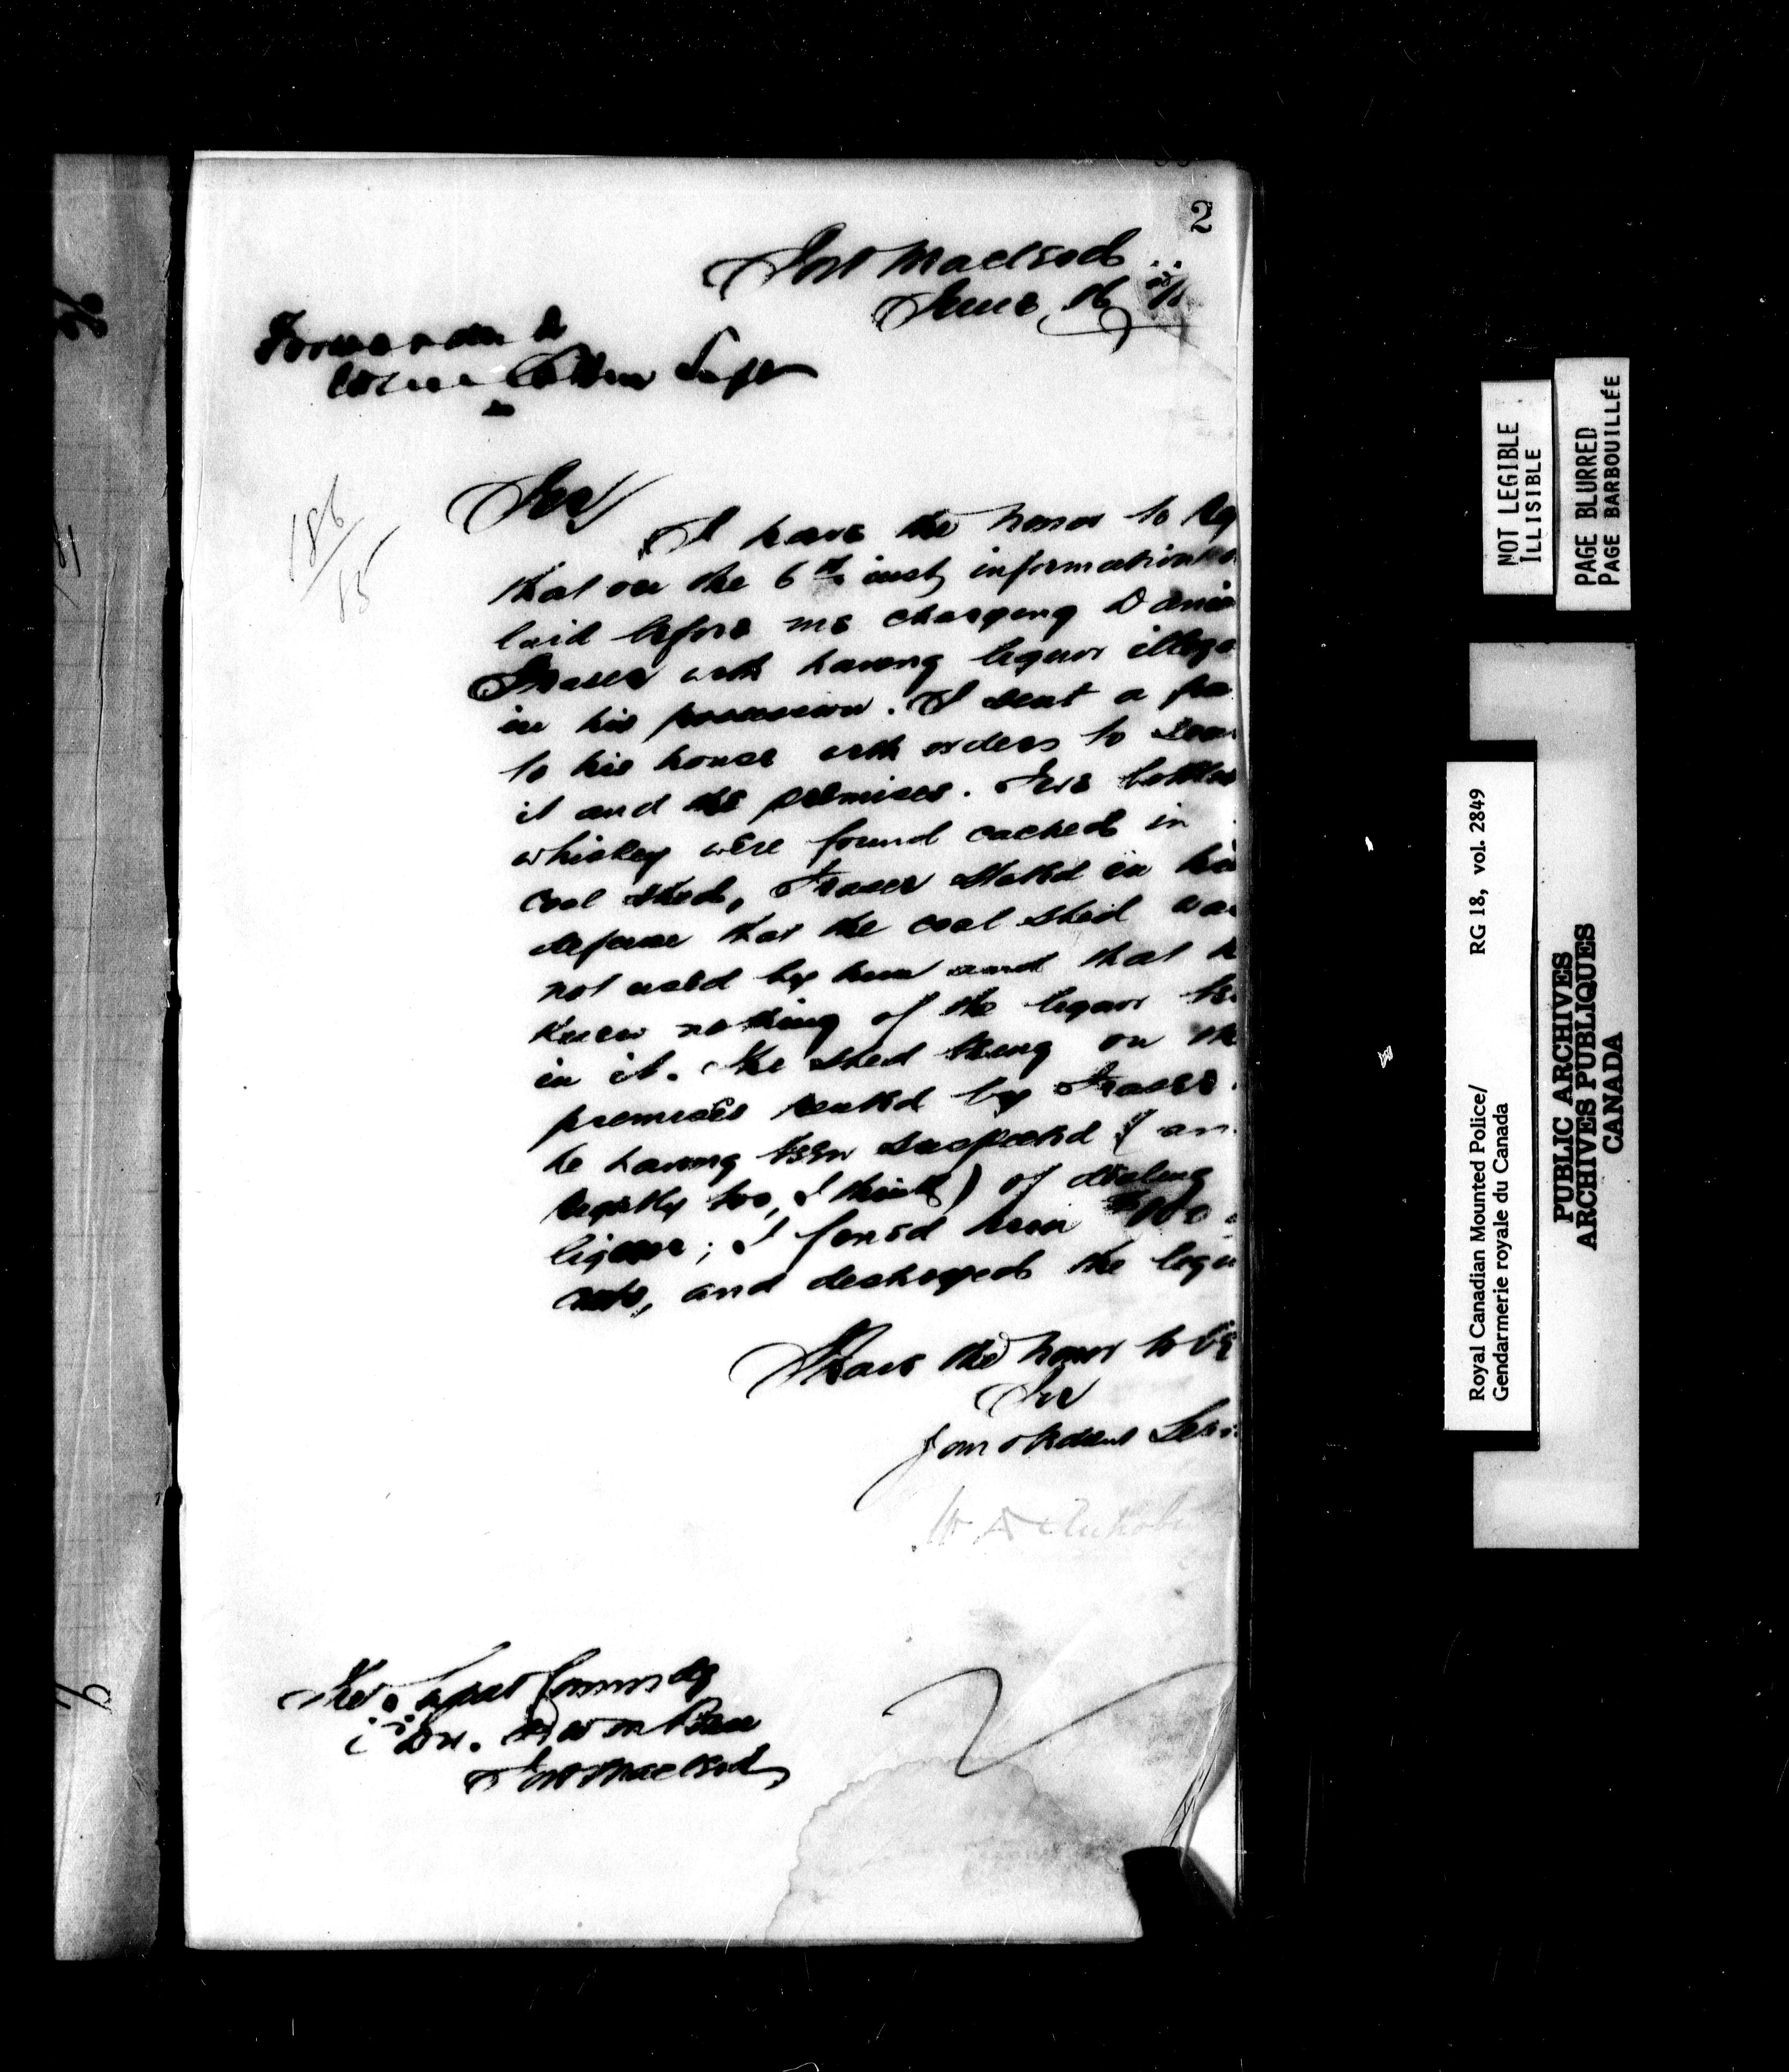 2
Fort Macleod
June 16
Forwarded
Cotton Supt
186/85
Sir
I have the honor to Rep
that on the 6th inst, information
laid before me charging Danie
Fraser with having liquor illega
in his possession. I sent a
to his house with orders to sear
it and the premises. Five bottles
whiskey were found cached in
coal shed, Fraser stated in his
defense that the coal shed was
not used by him and that h
knew nothing of the liquor
in it. The shed being on the
premises rented by Fraser
he having been suspected (an
rightly too, I think) of dealing
liquor; I fined him $100
costs, and destroyed the liqu
I have the honor to be
Sir
Your obedient Serv
The Supt Commdg
Dn. N W M Police
Fort Macleod
NOT LEGIBLE
ILLISIBLE
PAGE BLURRED
PAGE BARBOUILLÉE
Royal Canadian Mounted Police/ RG 18, vol. 2849
Gendarmerie royale du Canada
PUBLIC ARCHIVES
ARCHIVES PUBLIQUES
CANADA